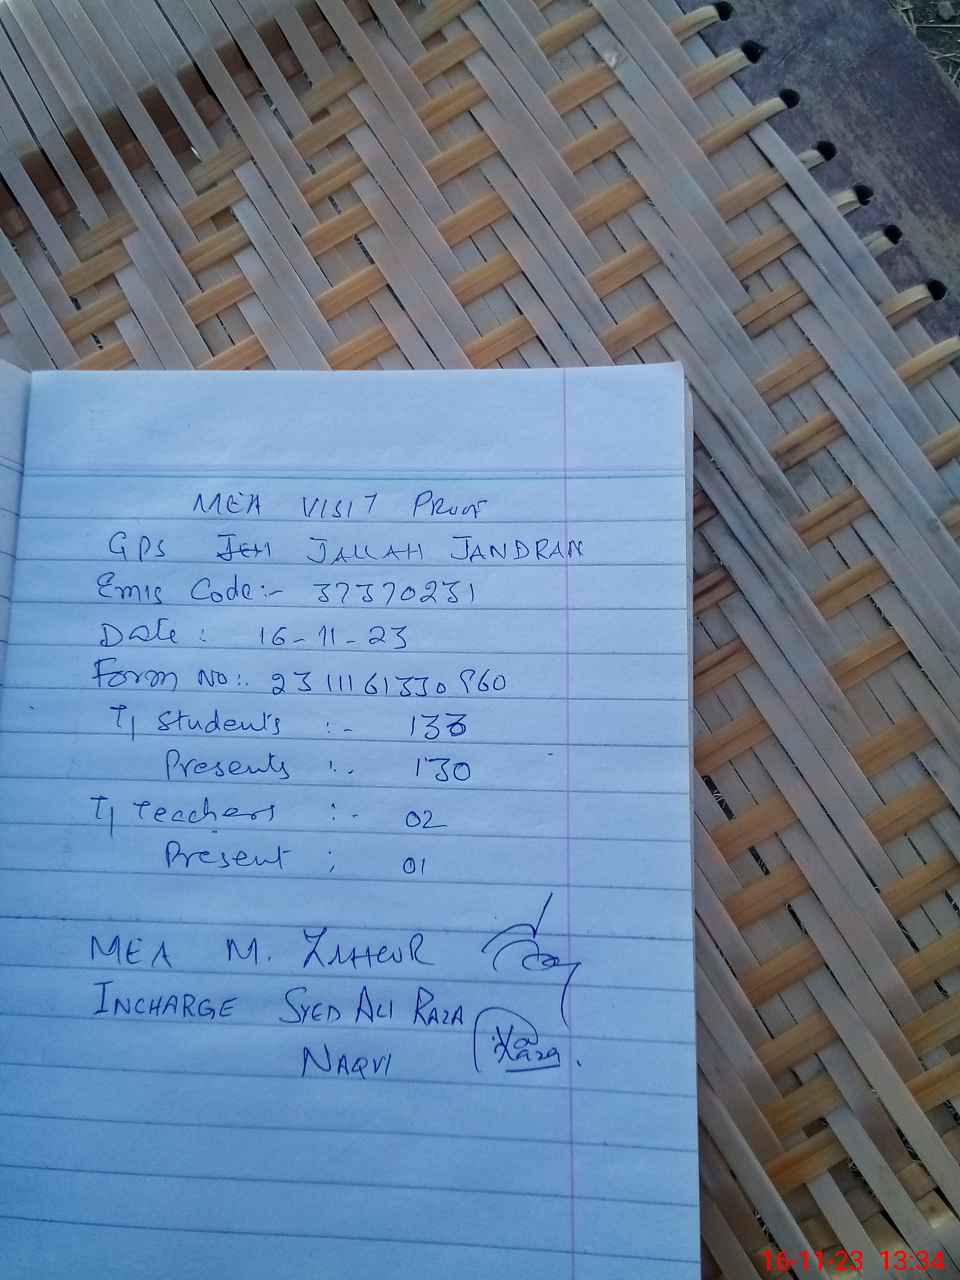 MEA VISIT Proof
GPS JEH JALLAH JANDRAN
Emis Code:- 37370231
Date : 16-11-23
Form No:. 23111161330860
Tl Students :- 133
Presents :. 130
Tl Teachers :- 02
Present : 01
MEA M. ZAHOOR
INCHARGE SYED ALI RAZA
NAQVI
16-11-23 13:34